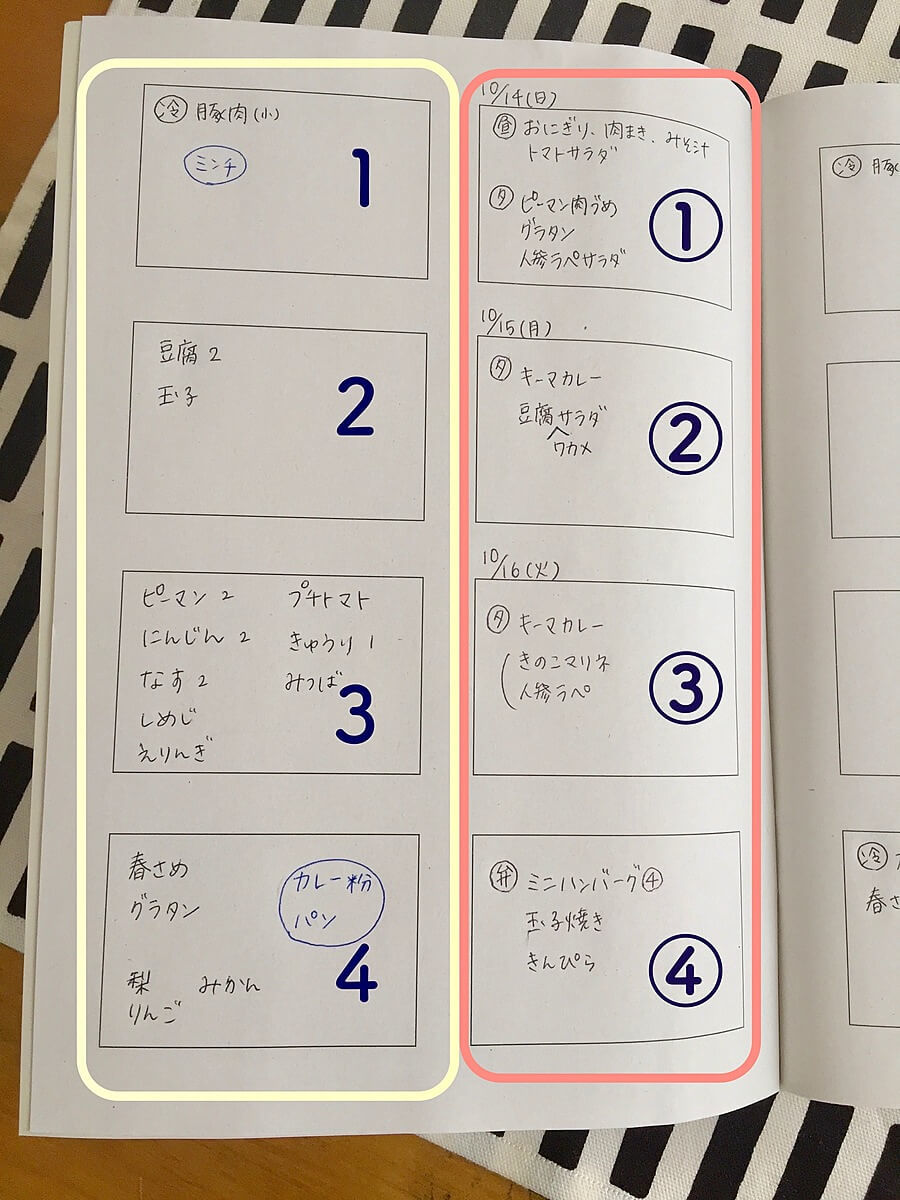 冷 豚肉(小)
ミンチ
1
豆腐 2
玉子
2
ピーマン 2
にんじん 2
なす 2
しめじ
えりんぎ
プチトマト
きゅうり 1
みつば
3
春さめ
グラタン
カレー粉
パン
梨 みかん
りんご
4
10/14(日)
昼 おにぎり、肉まき、みそ汁
トマトサラダ
夕 ピーマン肉づめ
グラタン
人参ラペサラダ
①
10/15(月)
夕 キーマカレー
豆腐サラダ
ワカメ
②
10/16(火)
夕 キーマカレー
きのこマリネ
人参ラペ
③
弁 ミニハンバーグ④
玉子焼き
きんぴら
④
冷 豚
冷
春さ